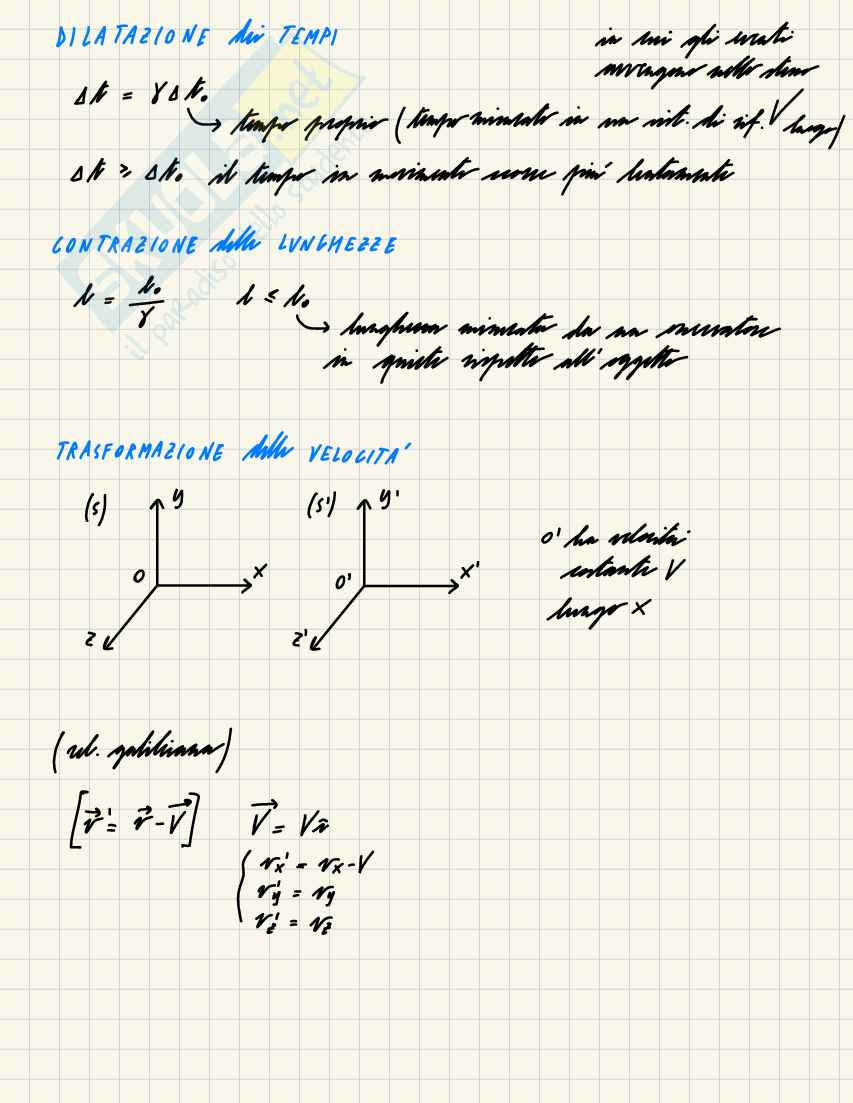 DILATAZIONE dei TEMPI
Δt = γ Δt₀
in cui gli eventi
avvengono nello stesso
tempo proprio (tempo misurato in un sist. di rif. luogo)
Δt ≥ Δt₀ il tempo in movimento scorre più lentamente
CONTRAZIONE delle LUNGHEZZE
l = l₀/γ l ≤ l₀
lunghezza misurata da un osservatore
in quiete rispetto all'oggetto
TRASFORMAZIONE delle VELOCITA'
(S) y (S') y'
O x O' x'
z z'
O' ha velocità
costante V
lungo x
(rel. galileiana)
[v⃗' = v⃗ - V⃗] V⃗ = V î
vx' = vx - V
vy' = vy
vz' = vz
skuola.net
il paradiso dello studente